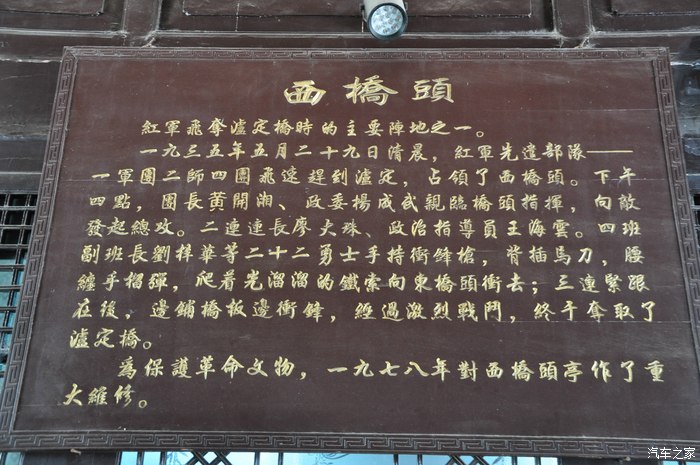 西橋頭
紅軍飛奪瀘定橋時的主要陣地之一。
一九三五年五月二十九日清晨，紅軍先遣部隊——
一軍團二師四團飛速趕到瀘定，占領了西橋頭。下午
四點，團長黃開湘、政委楊成武親臨橋頭指揮，向敵
發起總攻。二連連長廖大珠、政治指導員王海雲。四班
副班長劉梓華等二十二勇士手持衝鋒槍，背插馬刀，腰
纏手榴彈，爬着光溜溜的鐵索向東橋頭衝去；三連緊跟
在後、邊鋪橋板邊衝鋒，經過激烈戰鬥，終于奪取了
瀘定橋。
為保護革命文物，一九七八年對西橋頭亭作了重
大維修。
汽车之家